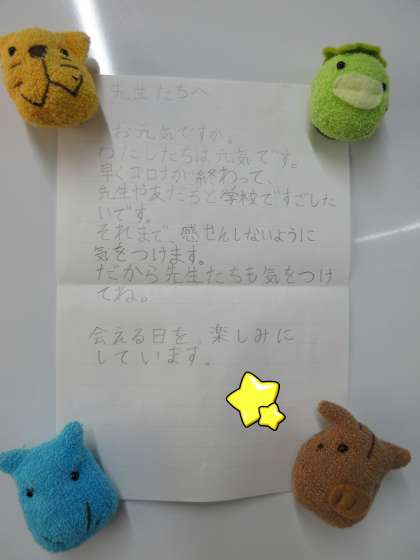 先生たちへ
お元気ですか。
わたしたちは元気です。
早くコロナが終わって、
先生や友だちと学校ですごした
いです。
それまで、感せんしないように
気をつけます。
だから先生たちも気をつけ
てね。
会える日を、楽しみに
しています。